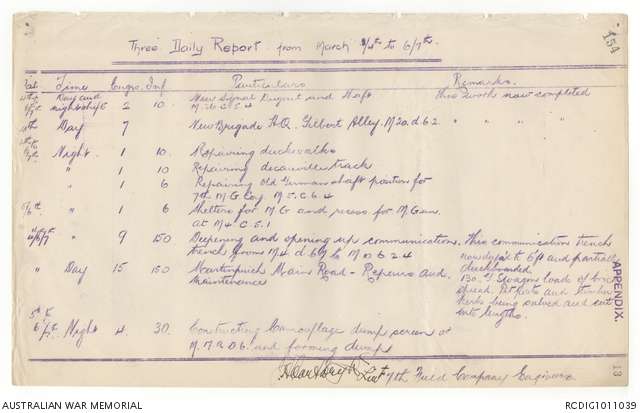 154
Three Daily Report from March 3/4th to 6/7th
Date Time Engrs. Inf. Particulars Remarks.
Day and New Signal Dugout and Shaft This work now completed
night shift 2 10
Day 7 New Brigade H.Q. Gilbert Alley. M20.d.6.2 " " " "
Night 1 10 Repairing duckwalks
" 1 10 Repairing decauville track
" 1 6 Repairing old German shaft position for
7th M G Coy M.5.C.6.4
" 1 6 Shelters for M G and recess for M Gun
at M4.C.5.1
" 9 150 Deepening and opening up communications. This communication trench
trench from M4.d.6.9 to now dug to 6ft and partially
duckboarded.
" Day 15 150 Martinpuich Main Road - Repairs and
maintenance
130 G.S. wagons loads of brick
spread. Pit props and timber
being salved and cut
into lengths.
5th to
6/7th Night 4 30 Constructing Camouflage dump screen at
and forming dump
Lieut 7th Field Company Engineers
APPENDIX. 13
AUSTRALIAN WAR MEMORIAL RCDIG1011039